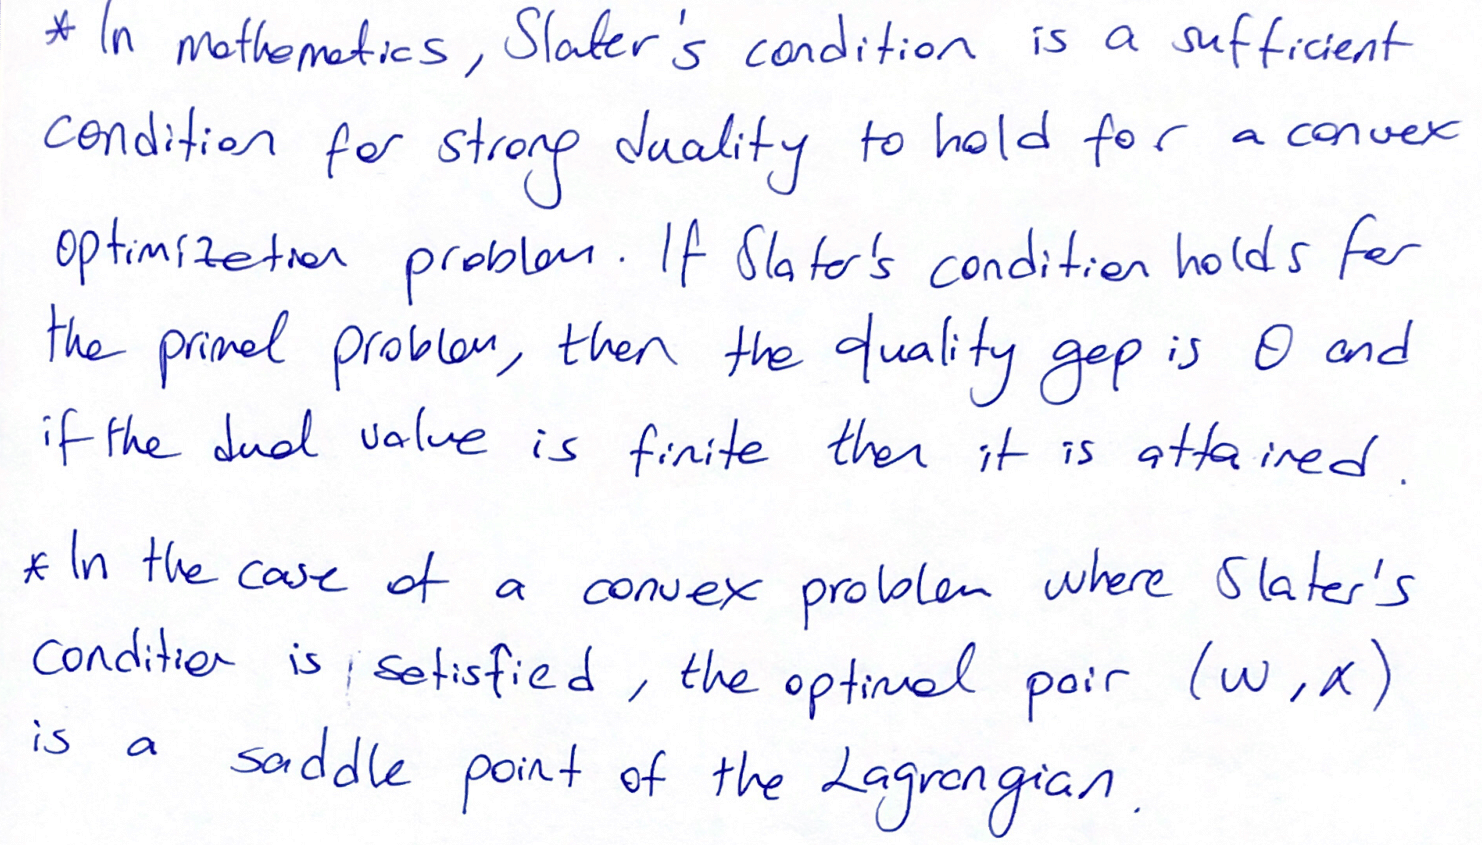 * In mathematics, Slater's condition is a sufficient
condition for strong duality to hold for a convex
optimization problem. If Slater's condition holds for
the primal problem, then the duality gap is 0 and
if the dual value is finite then it is attained.
* In the case of a convex problem where Slater's
condition is satisfied, the optimal pair (w, α)
is a saddle point of the Lagrangian.